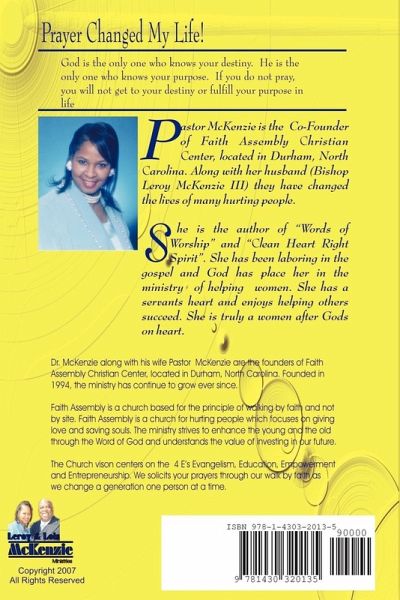 Prayer Changed My Life!
God is the only one who knows your destiny.  He is the
only one who knows your purpose.  If you do not pray,
you will not get to your destiny or fulfill your purpose in
life
Pastor McKenzie is the  Co-Founder
of Faith Assembly Christian
Center, located in Durham, North
Carolina. Along with her husband (Bishop
Leroy McKenzie III) they have changed
the lives of many hurting people.
She is the author of "Words of
Worship" and "Clean Heart Right
Spirit". She has been laboring in the
gospel and God has place her in the
ministry of helping  women. She has a
servants heart and enjoys helping others
succeed. She is truly a women after Gods
on heart.
Dr. McKenzie along with his wife Pastor  McKenzie are the founders of Faith
Assembly Christian Center, located in Durham, North Carolina. Founded in
1994, the ministry has continue to grow ever since.
Faith Assembly is a church based for the principle of walking by faith and not
by site. Faith Assembly is a church for hurting people which focuses on giving
love and saving souls. The ministry strives to enhance the young and the old
through the Word of God and understands the value of investing in our future.
The Church vison centers on the  4 E's Evangelism, Education, Empowerment
and Entrepreneurship. We solicits your prayers through our walk by faith as
we change a generation one person at a time.
Leroy & Lois
McKenzie
Ministries
Copyright 2007
All Rights Reserved
ISBN 978-1-4303-2013-5
90000
9 781430 320135